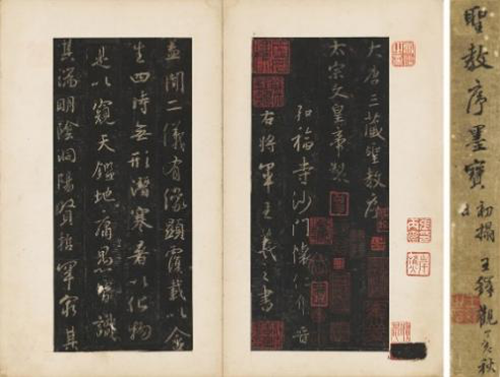 聖教序墨寶
初搨 王鐸觀 秋
大唐三藏聖教序
太宗文皇帝製
弘福寺沙門懷仁集晉
右將軍王羲之書
蓋聞二儀有像顯覆載以含
生四時無形潛寒暑以化物
是以窺天鑑地庸愚皆識
其端明陰洞陽賢哲罕窮其